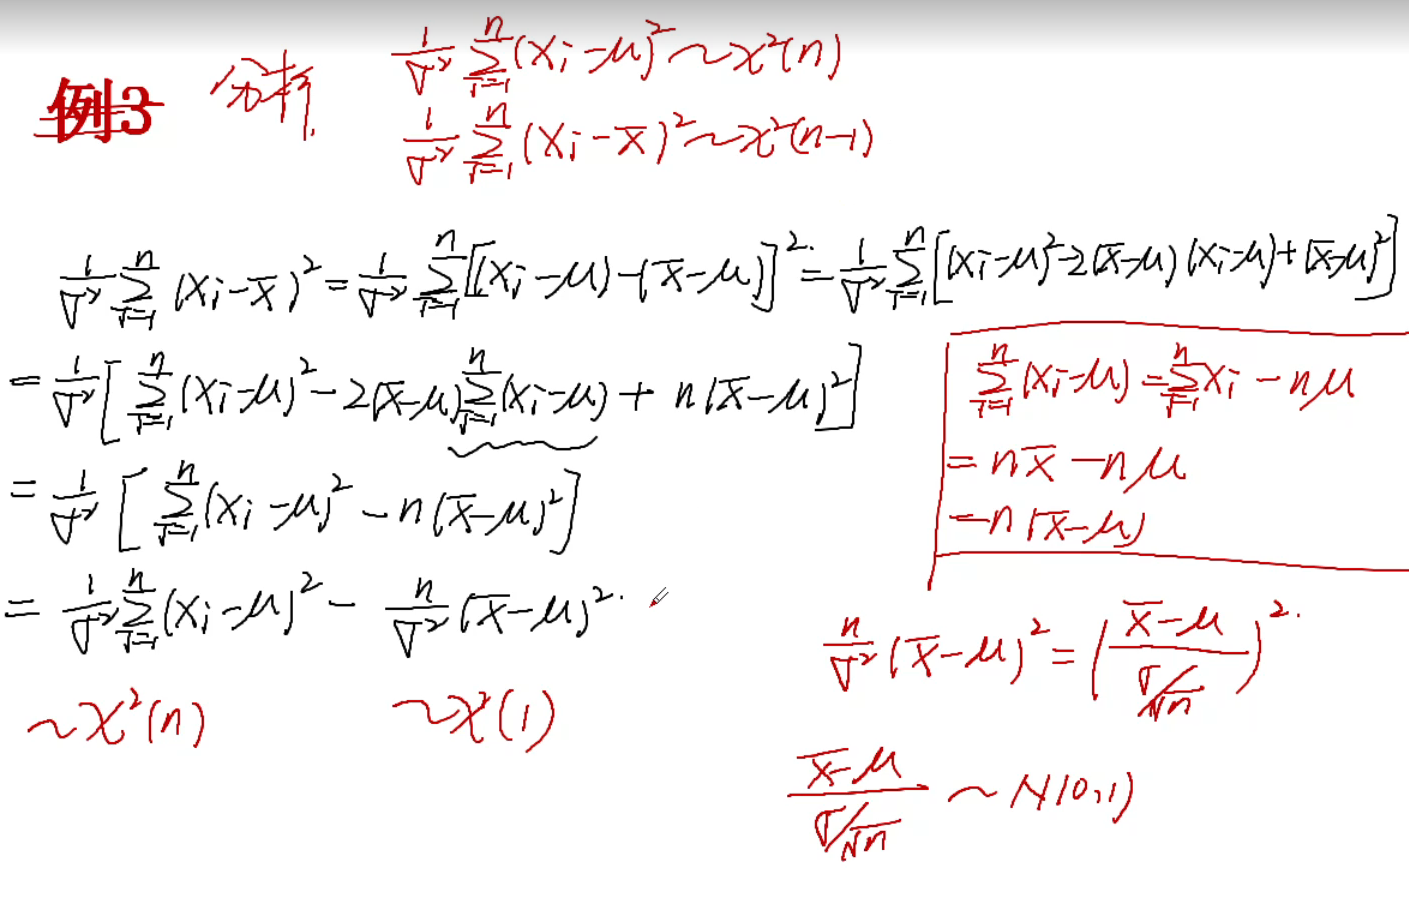 例3 分析
1/σ² Σ_{i=1}^{n} (Xᵢ-μ)² ~ χ²(n)
1/σ² Σ_{i=1}^{n} (Xᵢ-X̄)² ~ χ²(n-1)
1/σ² Σ_{i=1}^{n} (Xᵢ-X̄)² = 1/σ² Σ_{i=1}^{n} [(Xᵢ-μ)-(X̄-μ)]² = 1/σ² Σ_{i=1}^{n} [(Xᵢ-μ)²-2(X̄-μ)(Xᵢ-μ)+(X̄-μ)²]
= 1/σ² [Σ_{i=1}^{n} (Xᵢ-μ)² - 2(X̄-μ) Σ_{i=1}^{n} (Xᵢ-μ) + n(X̄-μ)²]
= 1/σ² [Σ_{i=1}^{n} (Xᵢ-μ)² - n(X̄-μ)²]
= 1/σ² Σ_{i=1}^{n} (Xᵢ-μ)² - n/σ² (X̄-μ)².
~χ²(n) ~χ²(1)
Σ_{i=1}^{n} (Xᵢ-μ) = Σ_{i=1}^{n} Xᵢ - nμ
= nX̄ - nμ
= n(X̄-μ)
n/σ² (X̄-μ)² = ((X̄-μ)/(σ/√n))².
(X̄-μ)/(σ/√n) ~ N(0,1)